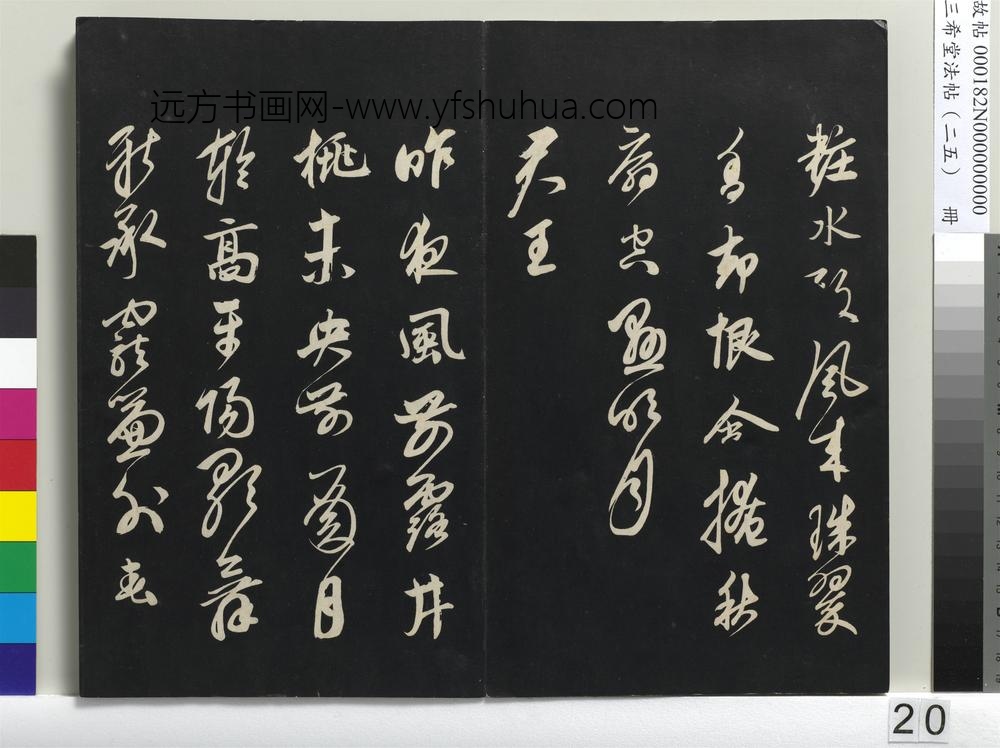 故帖 000182N000000000
三希堂法帖（二五） 冊
远方书画网-www.yfshuhua.com
粧水殿風来珠翠
香却恨含掩秋
扇空懸明月
君王
昨夜風開露井
桃未央前殿月
輪高平陽歌舞
新承寵簾外春
20